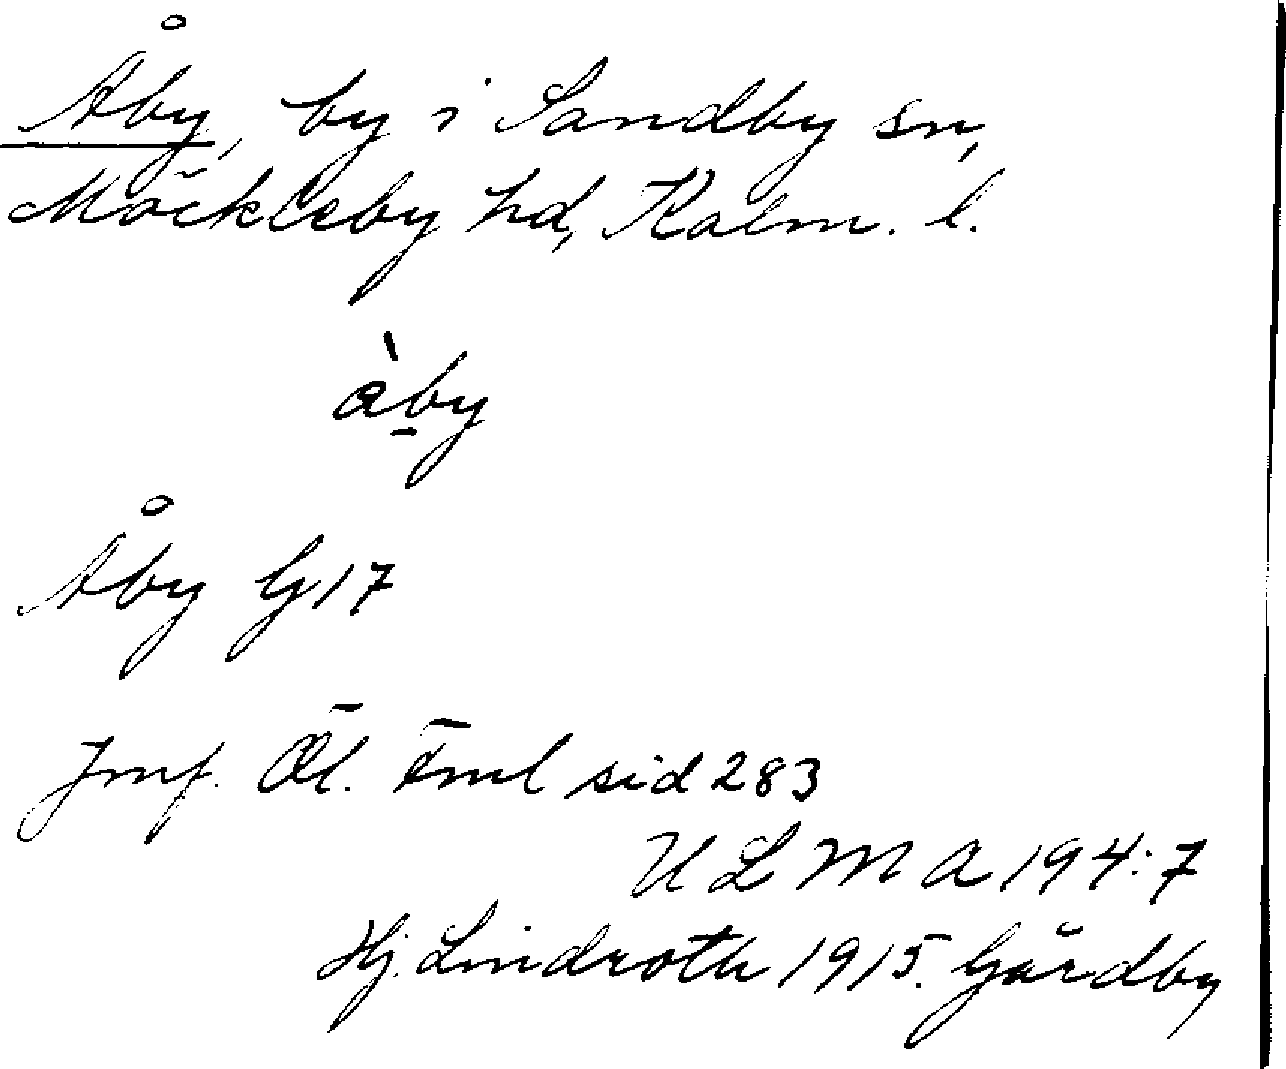 Åby, by i Sandby sn,
Möckleby hd, Kalm. l.
àby
Åby G 17
Jmf. Öl. Fml sid 283
ULMA 194:7
Hj. Lindroth 1915. Gårdby